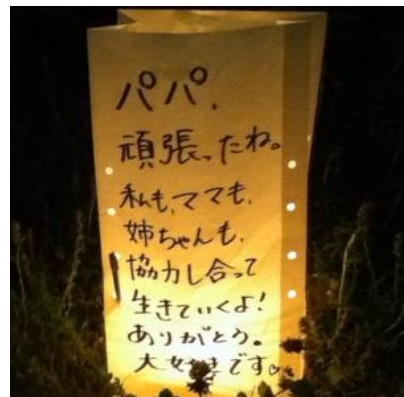 パパ、
頑張ったね。
私も、ママも、
姉ちゃんも、
協力し合って
生きていくよ!
ありがとう。
大好きです。